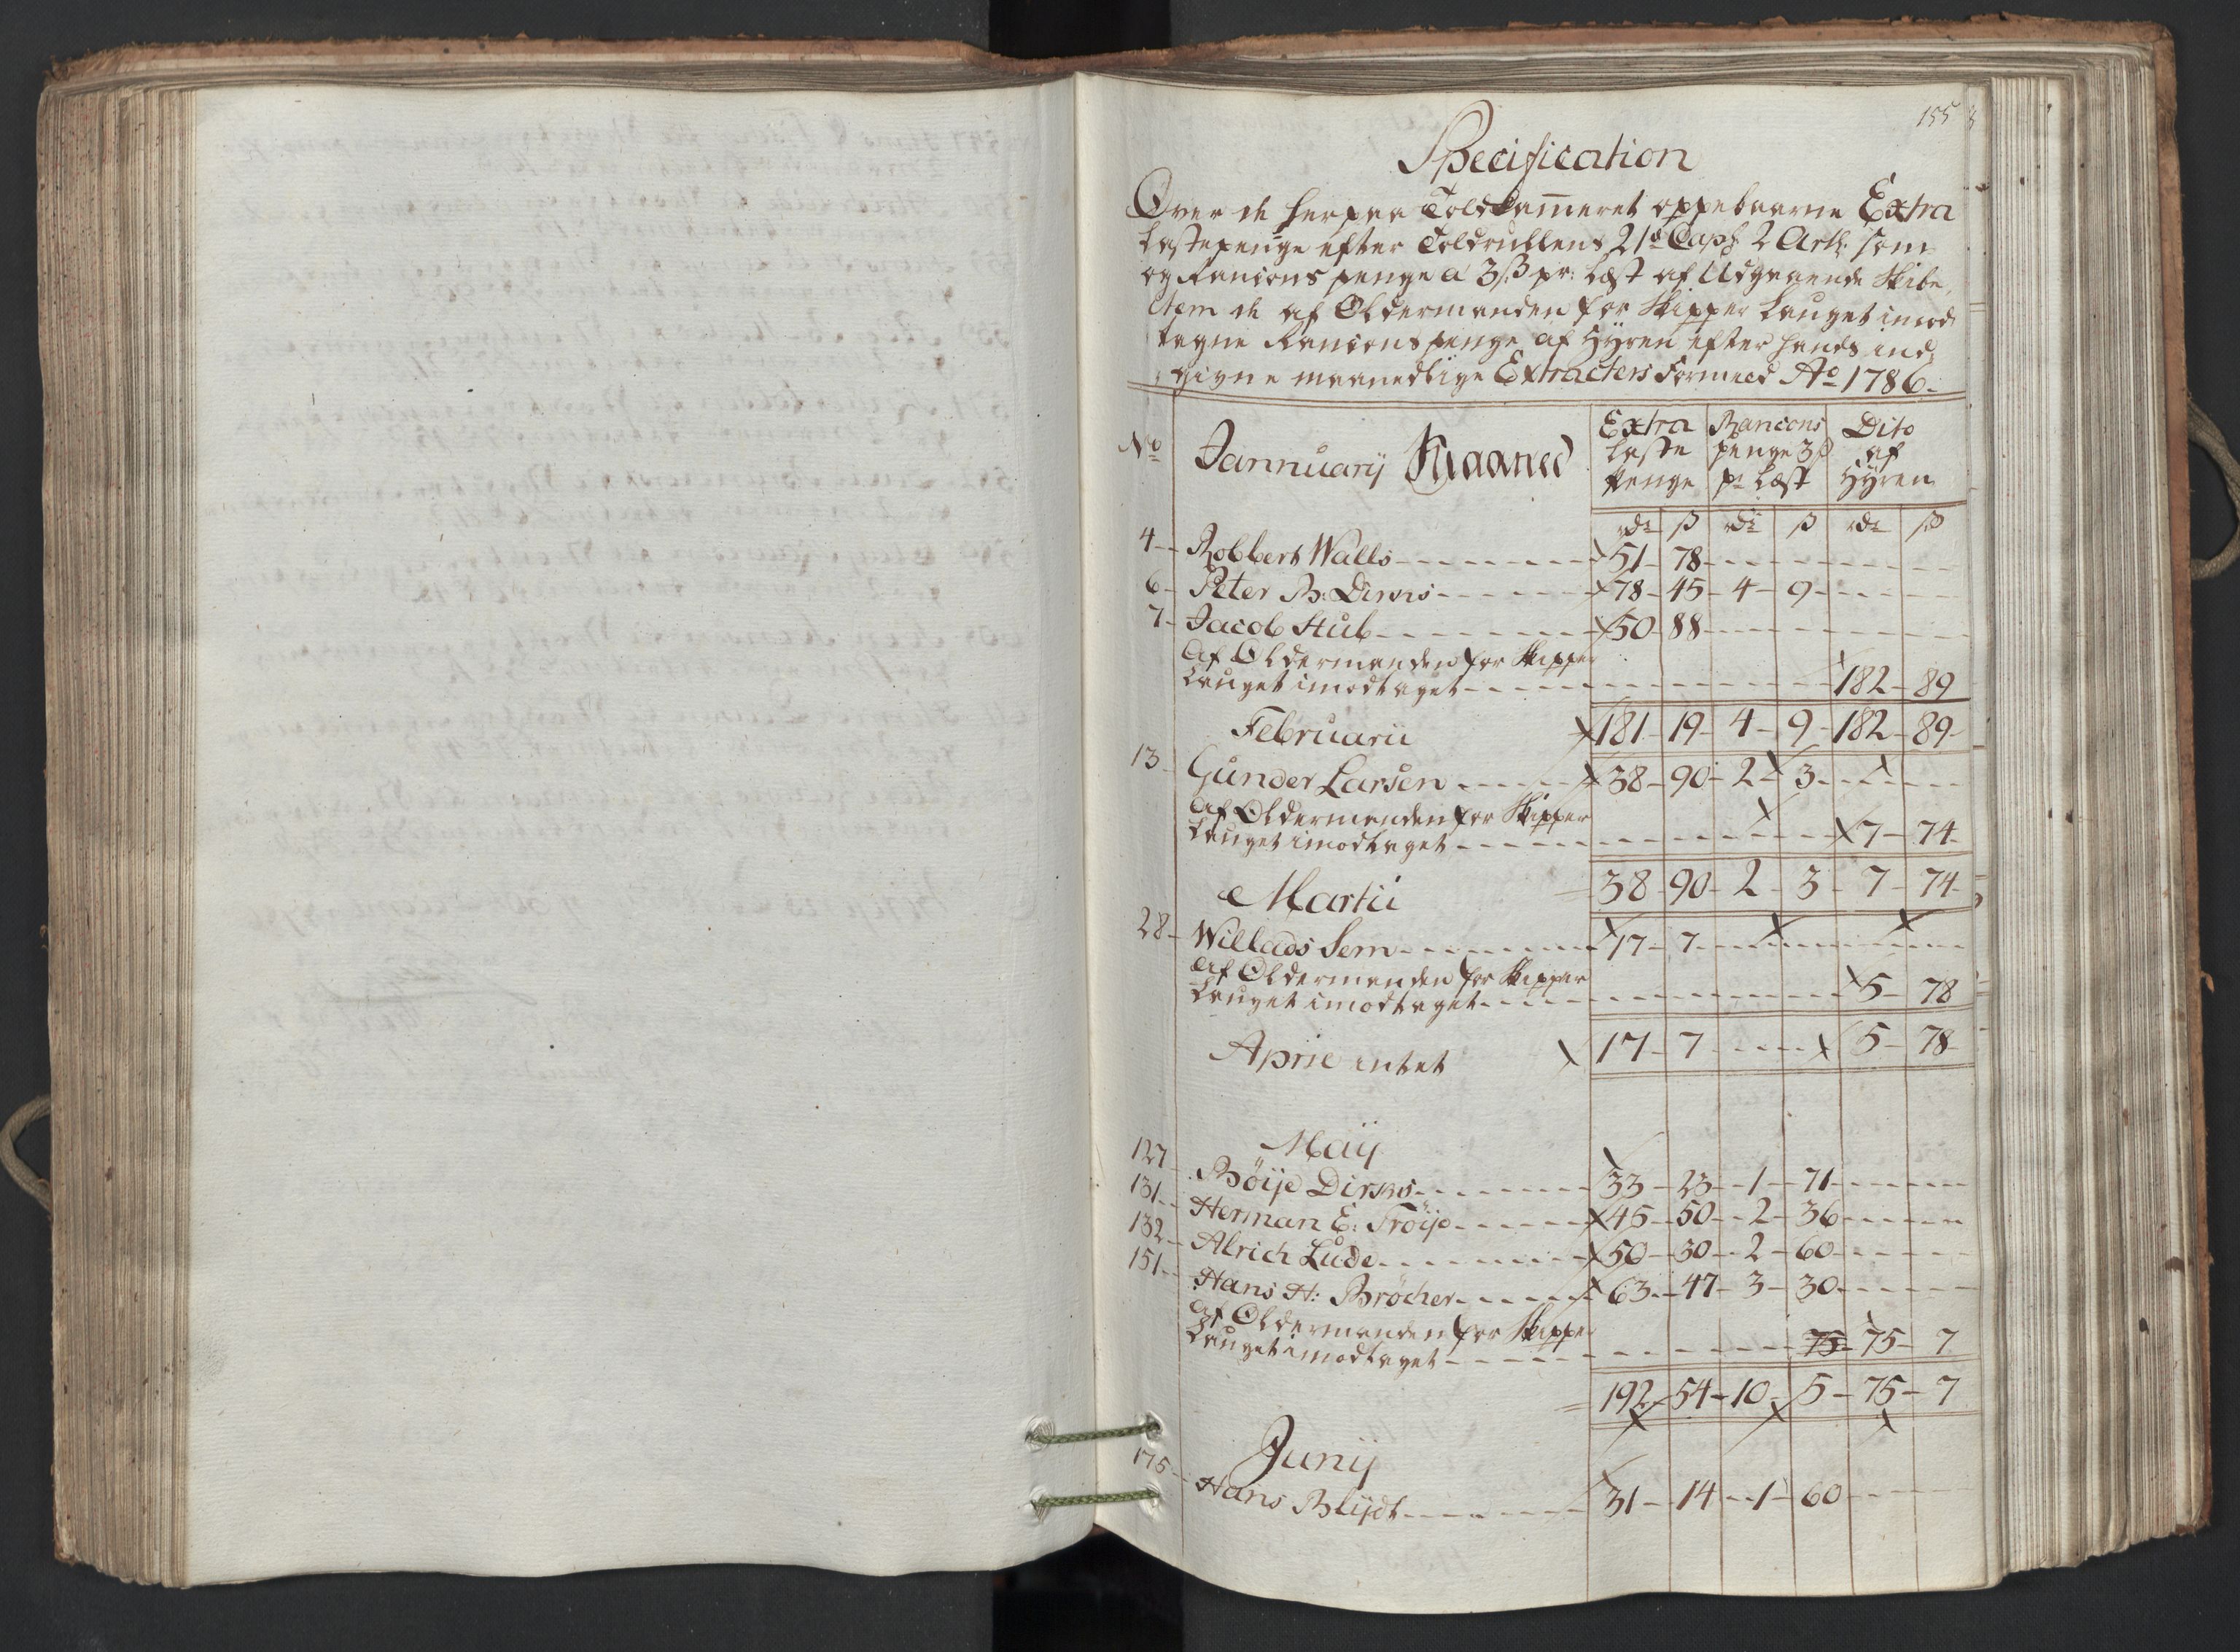 155
Specification
Over de herpaa Toldkam̄eret oppebaarne Extra
Lastepenge efter Toldrullens 21de Capt: 2 Artl: som
og Rancons penge a 3 ß pr: Læst af Udgaaende Skibe,
Item de af Oldermanden for Skipper Lauget imod-
tagne Rancons penge af Hyren efter hands ind-
givne maanedlige Extracter Formeed Ao 1786.
No Jannuarij Maaned Extra Laste Penge Rancons penge 3 ß pr Læst Dito af Hyren
rdr ß rdr ß rdr ß
4 - Robbert Walls 51 - 78
6 - Peter B: Dirks 78 - 45 - 4 - 9
7 - Jacob Stub 50 - 88
Af Oldermanden for Skipper
Lauget imodtaget 182 - 89
Februarii 181 - 19 - 4 - 9 - 182 - 89
13 - Gunder Larsen 38 - 90 - 2 - 3
Af Oldermanden for Skipper
Lauget imodtaget 7 - 74
Martii 38 - 90 - 2 - 3 - 7 - 74
28 - Willads Sem 17 - 7
Af Oldermanden for Skipper
Lauget imodtaget 5 - 78
April intet 17 - 7 5 - 78
Maij
127 - Böije Dirks 33 - 23 - 1 - 71
131 - Herman E: Tröije 45 - 50 - 2 - 36
132 - Alrich Lude 50 - 30 - 2 - 60
151 - Hans H: Bröcher 63 - 47 - 3 - 30
Af Oldermanden for Skipper
Lauget imodtaget 75 - 75 - 7
192 - 54 - 10 - 5 - 75 - 7
Junij
175 - Hans Blijdt 31 - 14 - 1 - 60